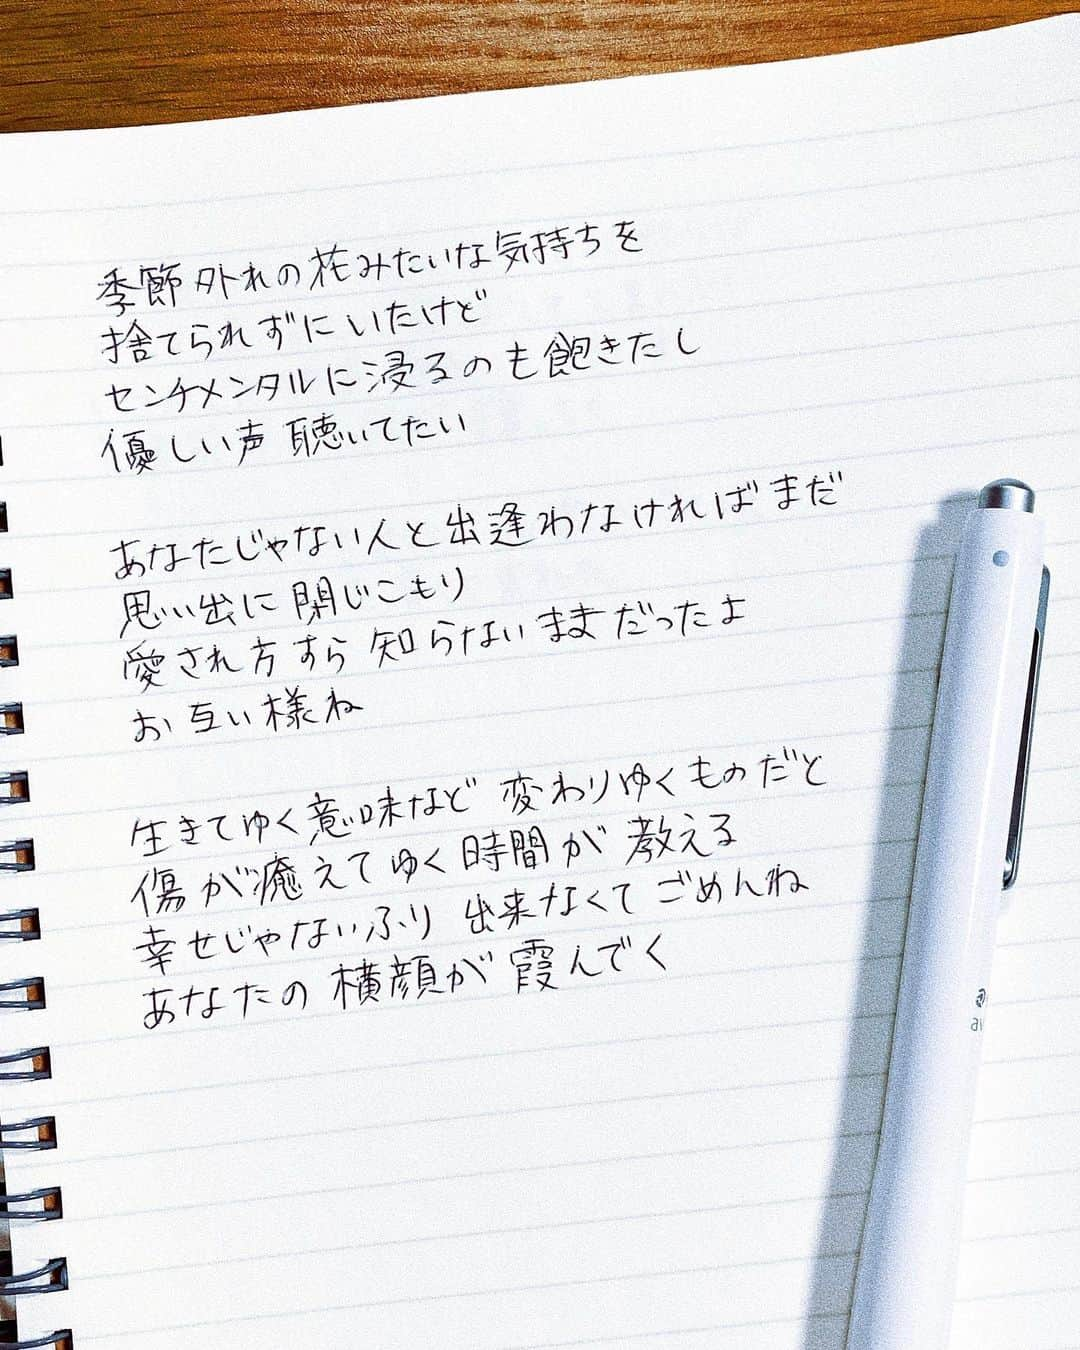 季節外れの花みたいな気持ちを
捨てられずにいたけど
センチメンタルに浸るのも飽きたし
優しい声 聴いてたい
あなたじゃない人と出逢わなければまだ
思い出に閉じこもり
愛され方すら知らないままだったよ
お互い様ね
生きてゆく意味など 変わりゆくものだと
傷が癒えてゆく時間が 教える
幸せじゃないふり 出来なくてごめんね
あなたの横顔が霞んでく